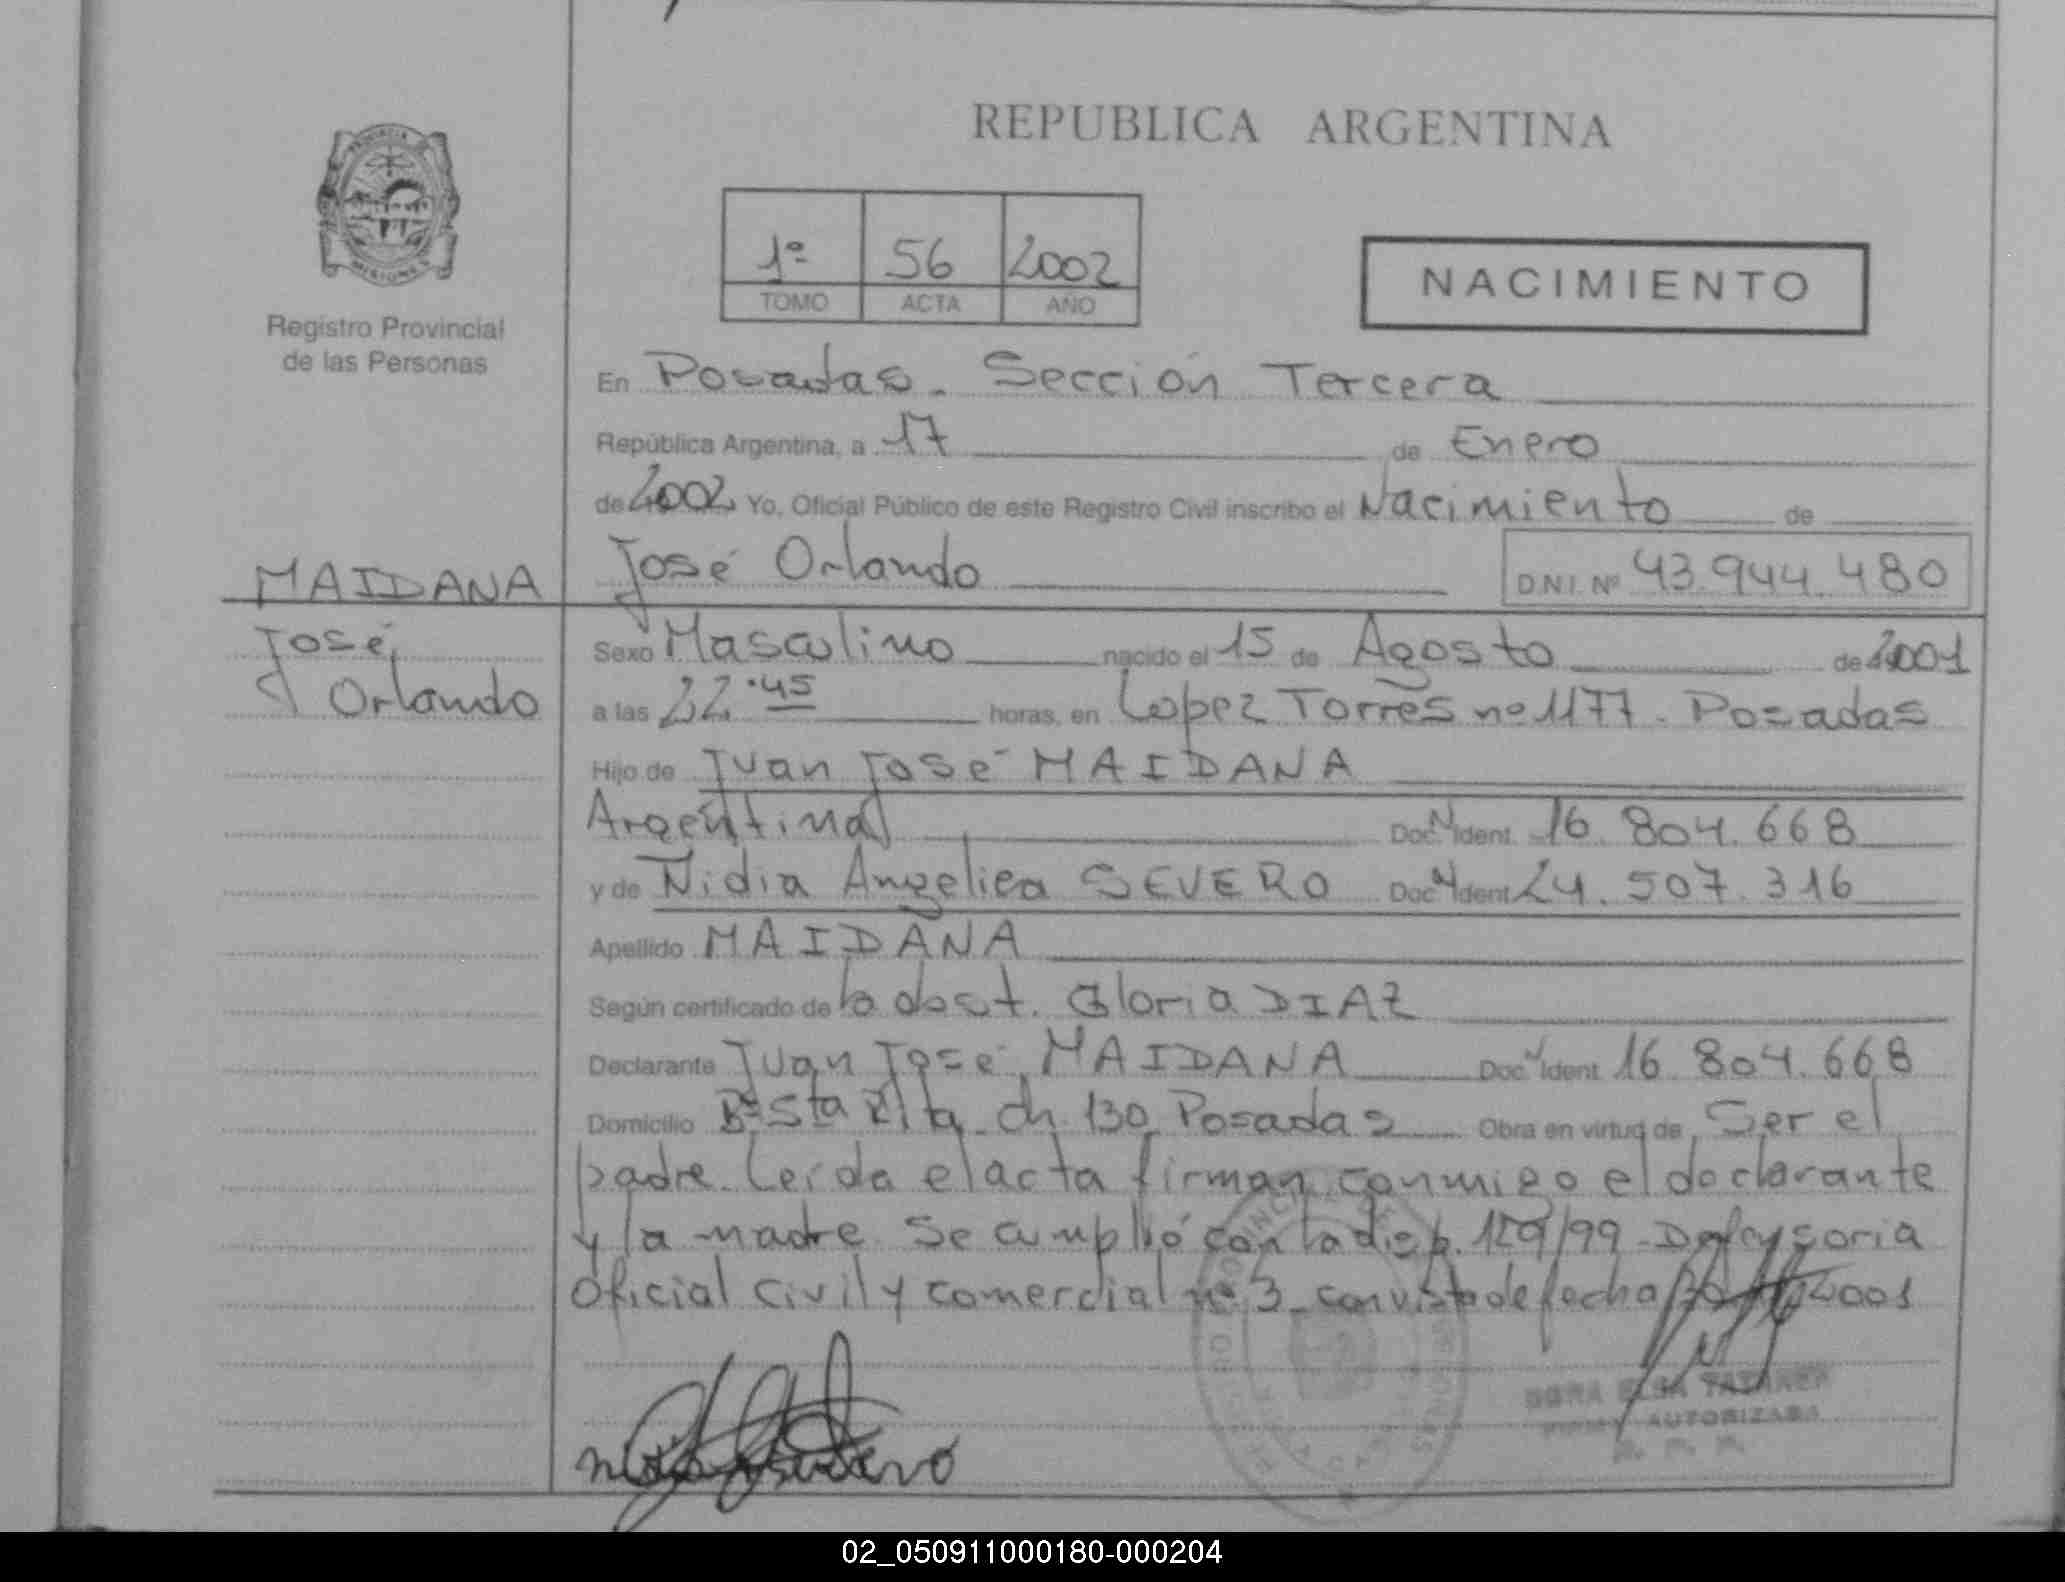 REPUBLICA ARGENTINA
PROVINCIA
MISIONES
Registro Provincial
de las Personas
1º 56 2002
TOMO ACTA AÑO
NACIMIENTO
En Posadas. Sección Tercera
República Argentina, a 17 de Enero
de 2002 Yo, Oficial Público de este Registro Civil inscribo el Nacimiento de
MAIDANA
José
Orlando
José Orlando D.N.I. Nº 43.944.480
Sexo Masculino nacido el 15 de Agosto de 2001
a las 22.45 horas, en Lopez Torres nº 1177. Posadas
Hijo de Juan José MAIDANA
Argentina Doc. N Ident. 16.804.668
y de Nidia Angelica SEVERO Doc. N Ident 24.507.316
Apellido MAIDANA
Según certificado de la obst. Gloria DIAZ
Declarante Juan José MAIDANA Doc. N Ident. 16.804.668
Domicilio Bº Sta Rita ch 130 Posadas Obra en virtud de Ser el
padre. Leída el acta firman conmigo el declarante
y la madre. Se cumplió con la disp. 129/99 - Defensoria
Oficial Civil y comercial nº 3 - con vista de fecha 2001
AUTORIZADA
02_050911000180-000204